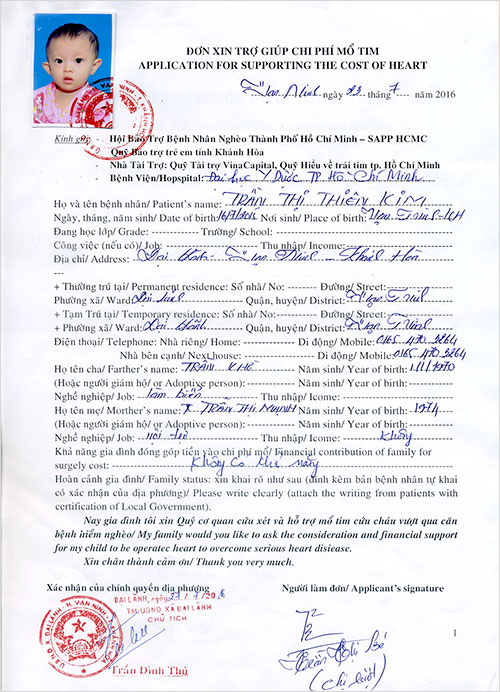 ĐƠN XIN TRỢ GIÚP CHI PHÍ MỔ TIM
APPLICATION FOR SUPPORTING THE COST OF HEART
Vạn Ninh ngày 23 tháng 7 năm 2016
Kính gửi: - Hội Bảo Trợ Bệnh Nhân Nghèo Thành Phố Hồ Chí Minh – SAPP HCMC
Quỹ Bảo trợ trẻ em tỉnh Khánh Hòa
- Nhà Tài Trợ: Quỹ Tài trợ VinaCapital, Quỹ Hiểu về trái tim tp. Hồ Chí Minh
- Bệnh Viện/Hopspital: Đại học Y Dược TP Hồ Chí Minh
Họ và tên bệnh nhân/ Patient's name: TRẦN THỊ THIÊN KIM
Ngày, tháng, năm sinh/ Date of birth: Nơi sinh/ Place of birth: Vạn Ninh-KH
Đang học lớp/ Grade: ------------ Trường/ School: ------------
Công việc (nếu có)/ Job: ------------ Thu nhập/ Income: ------------
Địa chỉ/ Address: Đại Lãnh - Vạn Ninh - Khánh Hòa
---
+ Thường trú tại/ Permanent residence: Số nhà/ No: -------- Đường/ Street: --------
Phường xã/ Ward: Đại Lãnh -------- Quận, huyện/ District: Vạn Ninh
+ Tạm Trú tại/ Temporary residence: Số nhà/ No: -------- Đường/ Street: --------
+ Phường xã/ Ward: Đại Lãnh -------- Quận, huyện/ District: Vạn Ninh
Điện thoại/ Telephone: Nhà riêng/ Home: ------------ Di động/ Mobile: 0165 470 3264
Nhà bên cạnh/ Next house: ------------ Di động/ Mobile: 0165 470 3264
Họ tên cha/ Farther's name: TRẦN KHÔ -------- Năm sinh/ Year of birth: 1/1/1970
(Hoặc người giám hộ/ or Adoptive person): -------- Năm sinh/ Year of birth: --------
Nghề nghiệp/ Job: làm biển -------- Thu nhập/ Icome: --------
Họ tên mẹ/ Morther's name: TRẦN THỊ Năm sinh/ Year of birth: 1974
(Hoặc người giám hộ/ or Adoptive person): -------- Năm sinh/ Year of birth: --------
Nghề nghiệp/ Job: nội trợ -------- Thu nhập/ Icome: Không
Khả năng gia đình đóng góp tiền vào chi phí mổ/ Financial contribution of family for
surgely cost: -------- Không có khả năng
Hoàn cảnh gia đình/ Family status: xin khai rõ như sau (đính kèm bản bệnh nhân tự khai
có xác nhận của địa phương)/ Please write clearly (attach the writing from patients with
certification of Local Government).
Nay gia đình tôi xin Quý cơ quan cứu xét và hỗ trợ mổ tim cứu cháu vượt qua căn
bệnh hiểm nghèo/ My family would you like to ask the consideration and financial support
for my child to be operatec heart to overcome serious heart disiease.
Xin chân thành cảm ơn/ Thank you very much.
Xác nhận của chính quyền địa phương
Người làm đơn/ Applicant's signature
ĐẠI LÃNH, ngày 27/7/2016
TM/UBND XÃ ĐẠI LÃNH
CHỦ TỊCH
Trần Đình Thú
Trần Thị Bé
1